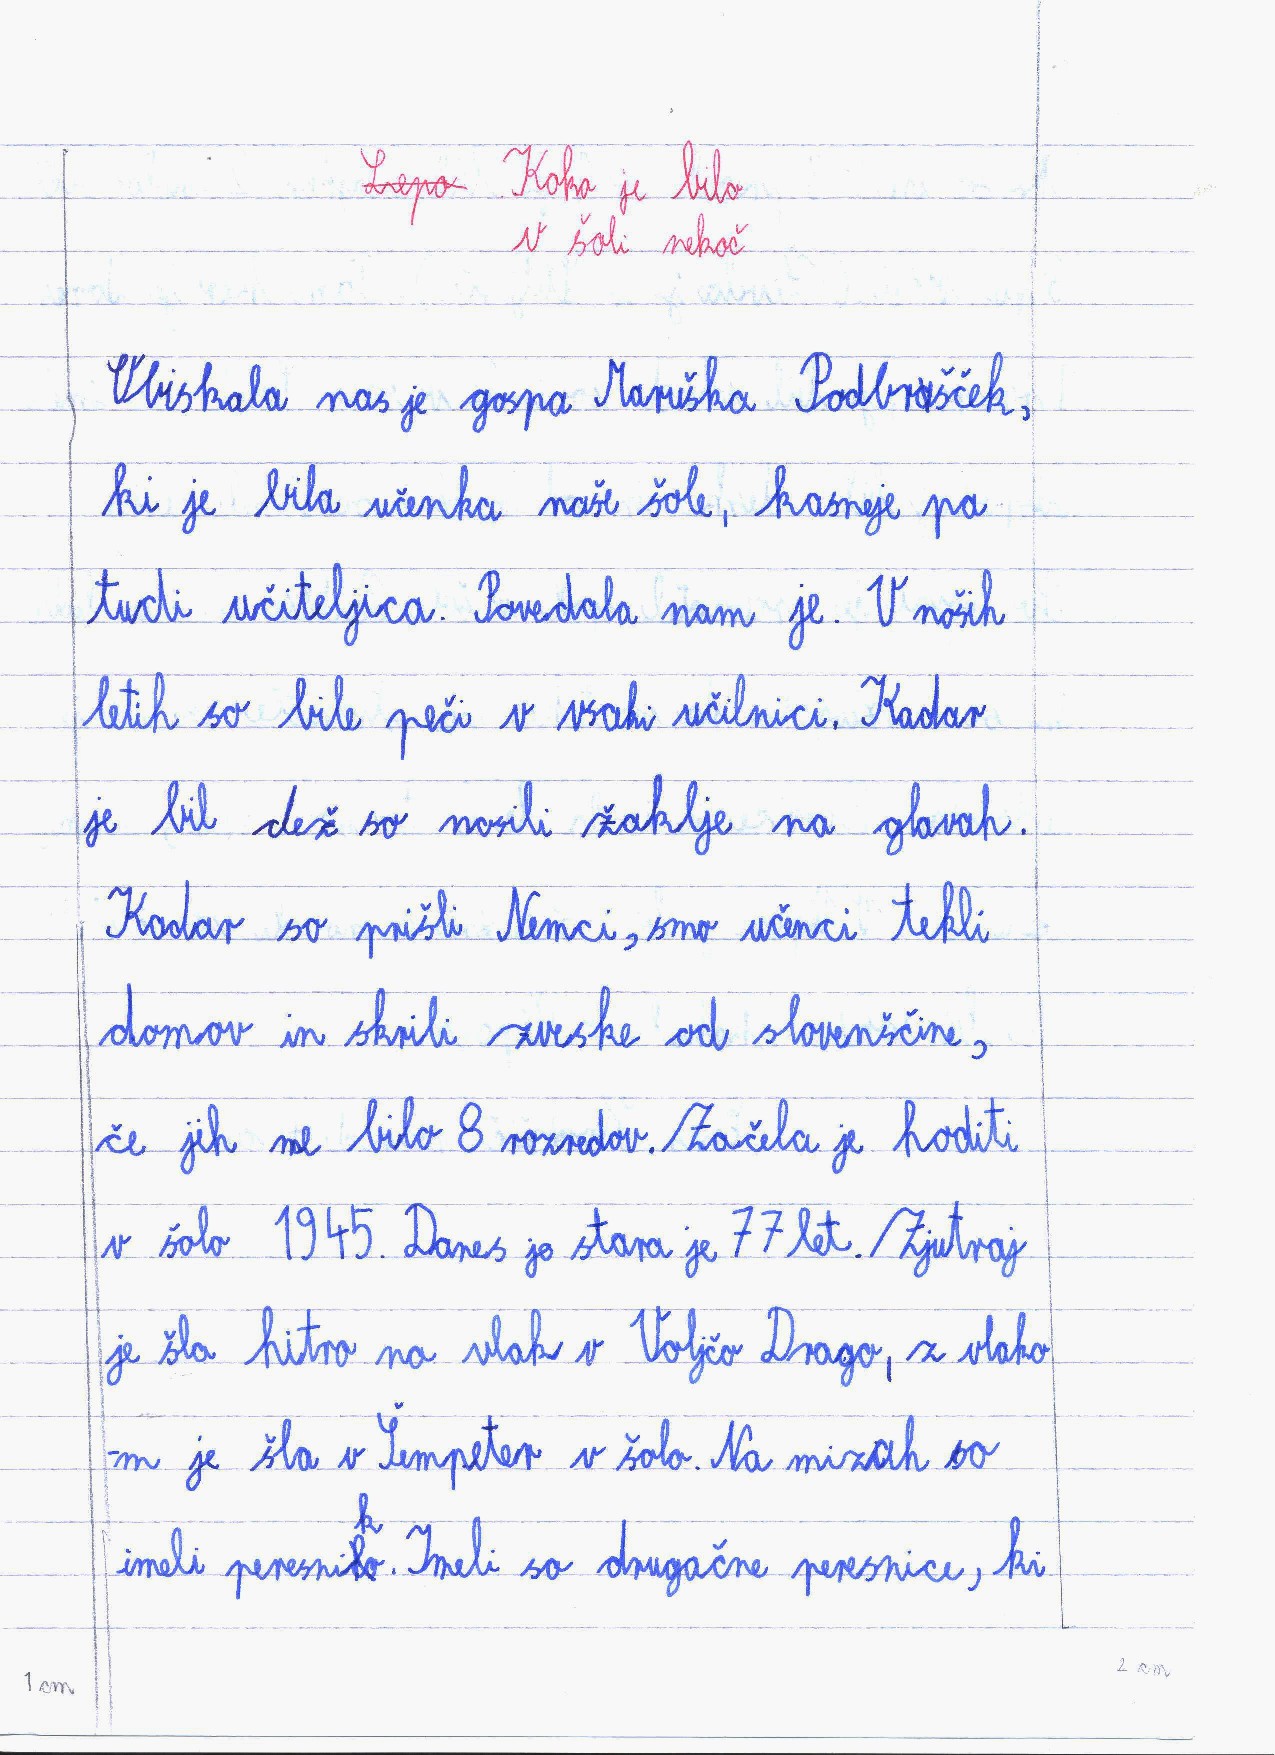 Lepo Kako je bilo
v šoli nekoč
Obiskala nas je gospa Maruška Podbršček,
ki je bila učenka naše šole, kasneje pa
tudi učiteljica. Povedala nam je. V naših
letih so bile peči v vsaki učilnici. Kadar
je bil dež so nosili žaklje na glavah.
Kadar so prišli Nemci, smo učenci tekli
domov in skrili zveske od slovenščine,
če jih ne bilo 8 razredov. Začela je hoditi
v šolo 1945. Danes je stara je 77 let. Zjutraj
je šla hitro na vlak v Voljčo Drago, z vlako
-m je šla v Šempeter v šolo. Na mizah so
imeli peresniko. Imeli so drugačne peresnice, ki
1 cm
2 cm